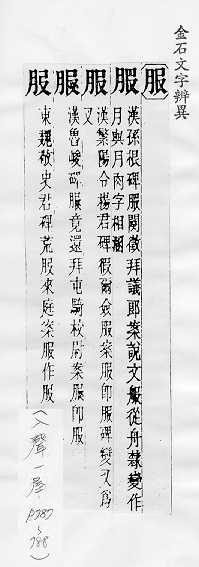 金石文字辨異
服
服 漢孫根碑服闋徵拜議郎案說文服從舟隸變作
月與月肉字相溷
服 漢繁陽令楊君碑假爾僉服案服即服碑變又為
又
服 漢魯峻碑服竟還拜屯騎校尉案服即服
服 東魏敬史君碑荒服來庭案服作服
(入聲一屋
P787
788)